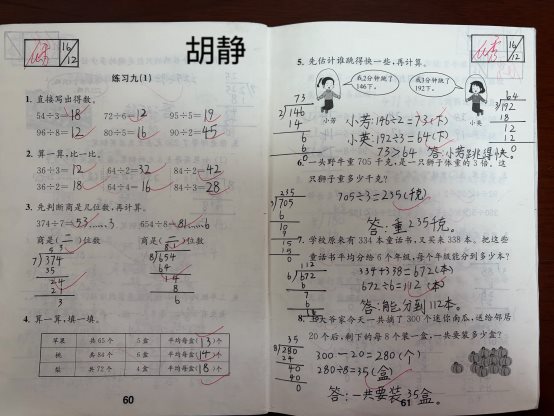 优秀 16/12
胡静
练习九(1)
1. 直接写出得数。
54÷3=18 72÷6=12 95÷5=19
96÷8=12 80÷5=16 90÷2=45
2. 算一算,比一比。
36÷3=12 64÷2=32 84÷2=42
36÷2=18 64÷4=16 84÷3=28
3. 先判断商是几位数,再计算。
374÷7=53……3 654÷8=81……6
商是(二)位数 商是(二)位数
53 81
7 374 8 654
35 64
24 14
21 8
3 6
4. 算一算,填一填。
苹果 共65个 5盒 平均每盒(13)个
桃 共84个 6盒 平均每盒(14)个
梨 共72个 4盒 平均每盒(18)个
60
优秀 16/12
5. 先估计谁跳得快一些,再计算。
我2分钟跳了146下。 我3分钟跳了192下。
小芳 小英
73 64
2 146 3 192
14 18
6 12
6 12
0 0
小芳:146÷2=73(下)
小英:192÷3=64(下)
73>64 答:小芳跳得快。
6. 一头野牛重705千克,是一只狮子体重的3倍。这
只狮子重多少千克?
235
3 705
6
10
9
15
15
0
705÷3=235(千克)
答:重235千克。
7. 学校原来有334本童话书,又买来338本。把这些
童话书平均分给6个年级,每个年级能分到多少本?
112
6 672
6
7
6
12
334+338=672(本)
672÷6=112(本)
答:能分到112本。
8. 大爷家今天一共摘了300个迷你南瓜,送给邻居
20个后,剩下的每8个装一盒,一共要装多少盒?
35
8 280
24
40
40
0
300-20=280(个)
280÷8=35(盒)
答:一共要装35盒。
61